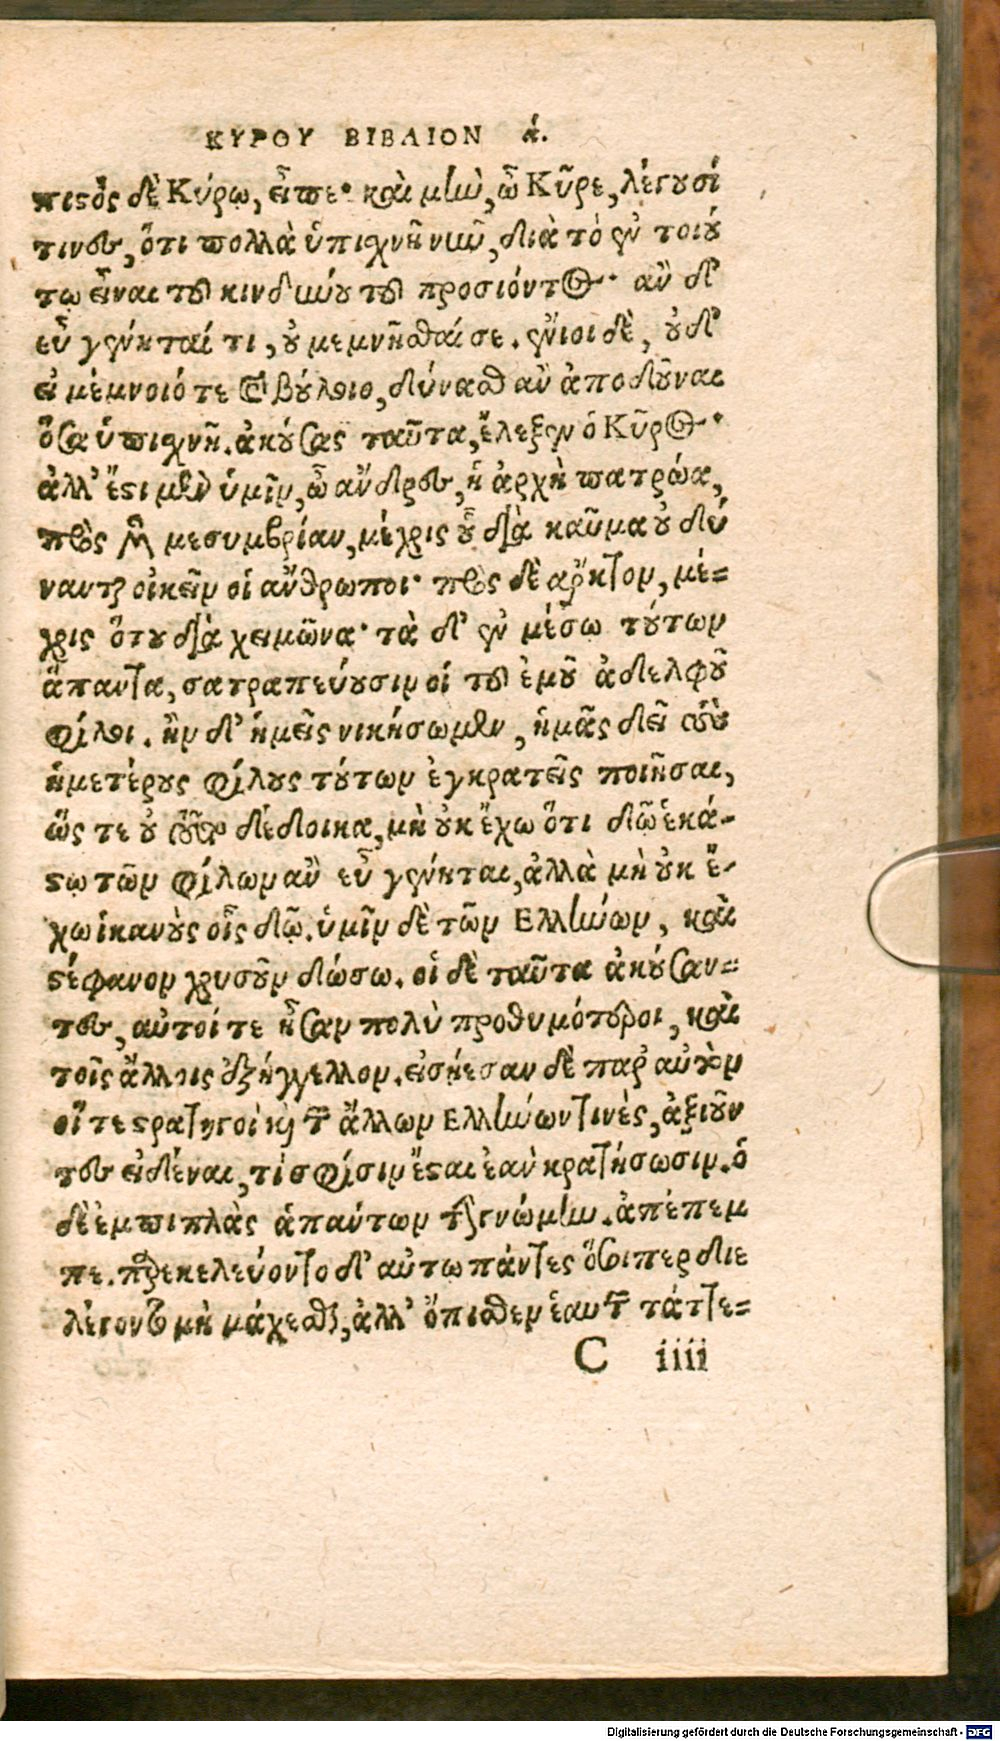 ΚΥΡΟΥ ΒΙΒΛΙΟΝ ά.
πιστὸς δὲ Κύρῳ, εἶπε· καὶ μὴν, ὦ Κῦρε, λέγουσί
τινες, ὅτι πολλὰ ὑπισχνῇ νῦν, διὰ τὸ ἐν τοιού
τῳ εἶναι τοῦ κινδύνου τοῦ προσιόντος· ἂν δ'
εὖ γένηταί τι, οὐ μεμνῆσθαί σε. ἔνιοι δὲ, οὐδ'
εἰ μέμνοιό τε καὶ βούλοιο, δύνασθαι ἂν ἀποδοῦναι
ὅσα ὑπισχνῇ. ἀκούσας ταῦτα, ἔλεξεν ὁ Κῦρος·
ἀλλ' ἔστι μὲν ὑμῖν, ὦ ἄνδρες, ἡ ἀρχὴ πατρῴα,
πρὸς μὲν μεσυμβρίαν, μέχρις οὗ διὰ καῦμα οὐ δύ
νανται οἰκεῖν οἱ ἄνθρωποι· πρὸς δὲ ἄρκτον, μέ-
χρις ὅτου διὰ χειμῶνα· τὰ δ' ἐν μέσῳ τούτων
ἅπαντα, σατραπεύουσιν οἱ τοῦ ἐμοῦ ἀδελφοῦ
φίλοι. ἢν δ' ἡμεῖς νικήσωμεν, ἡμᾶς δεῖ τοὺς
ἡμετέρους φίλους τούτων ἐγκρατεῖς ποιῆσαι,
ὥς τε οὐ τοῦτο δέδοικα, μὴ οὐκ ἔχω ὅτι δῶ ἑκά-
στῳ τῶν φίλων ἂν εὖ γένηται, ἀλλὰ μὴ οὐκ ἔ-
χω ἱκανοὺς οἷς δῶ. ὑμῖν δὲ τῶν Ελλήνων, καὶ
στέφανον χρυσοῦν δώσω. οἱ δὲ ταῦτα ἀκούσαν-
τες, αὐτοί τε ἦσαν πολὺ προθυμότεροι, καὶ
τοῖς ἄλλοις ἐξήγγελλον. εἰσῄεσαν δὲ παρ' αὐτὸν
οἵ τε στρατηγοὶ καὶ τῶν ἄλλων Ελλήνων τινὲς, ἀξιοῦν
τες εἰδέναι, τί σφίσιν ἔσται ἐὰν κρατήσωσιν. ὁ
δὲ ἐμπιπλὰς ἁπάντων τὴν γνώμην. ἀπέπεμ
πε. παρεκελεύοντο δ' αὐτῳ πάντες ὅσοιπερ διε
λέγοντο μὴ μάχεσθαι, ἀλλ' ὄπισθεν ἑαυτῶν τάττε-
C iiii
Digitalisierung gefördert durch die Deutsche Forschungsgemeinschaft - DFG